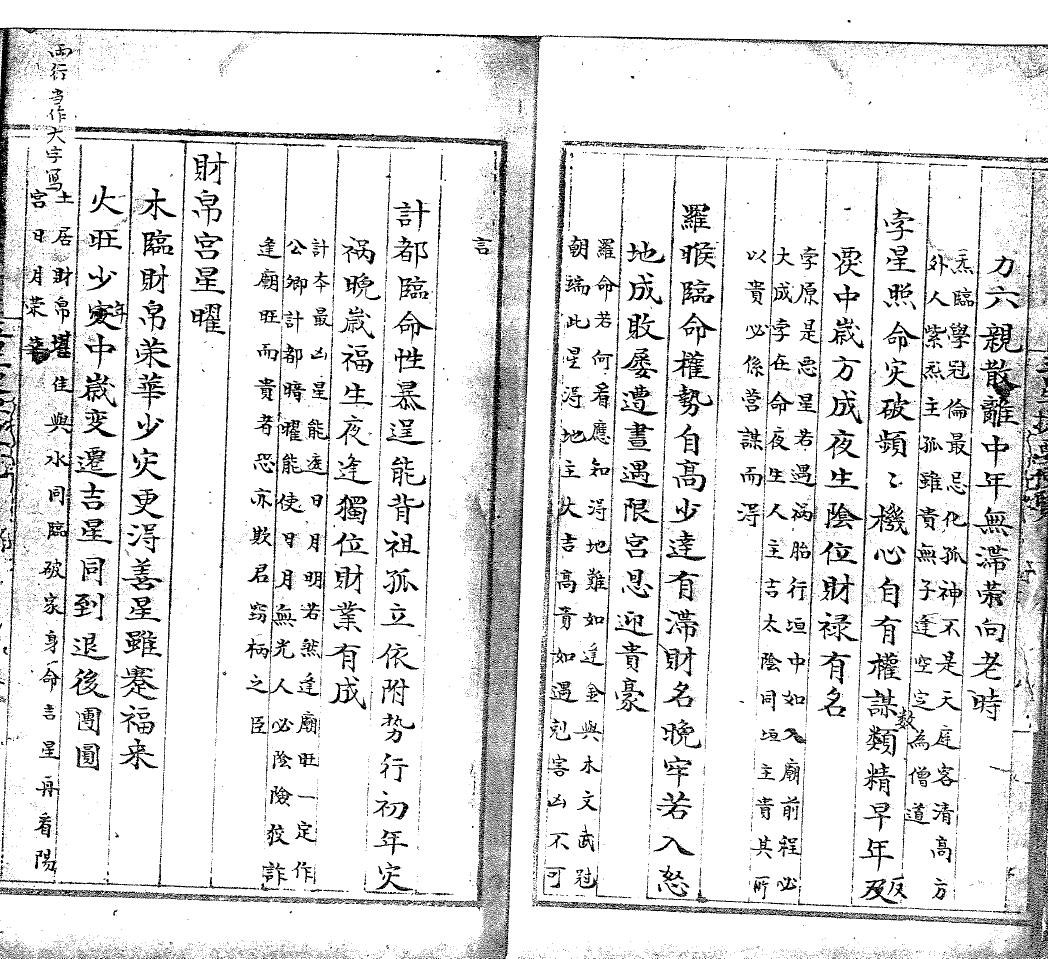 力六親散離中年無滞荣向老時
炁臨學冠倫最忌化孤神不是天庭客清高方
外人紫炁主孤雖貴無子逢空定為僧道
孛星照命灾破頻〻機心自有權謀類精早年及
灾中歲方成夜生陰位財禄有名
孛原是悪星若遇禍胎行垣中如入廟前程必
大成孛在命夜生人主吉太陰同垣主貴其所
以貴必係营謀而淂
羅睺臨命權勢自高少達有滞財名晚牢若入怒
地成敗屡遭晝遇限宮恩迎貴豪
羅命若何看應知淂地難如逢金與木文武冠
朝端此星淂地主大吉高貴如遇剋害凶不可
言
計都臨命性暴逞能背祖孤立依附势行初年灾
祸晚歲福生夜逢獨位財業有成
計夲最凶星能遮日月明若然逢廟旺一定作
公卿計都暗曜能使日月無光人必陰險狡詐
逢廟旺而貴者恐亦欺君窃柄之臣
財帛宮星曜
木臨財帛荣華少灾更淂善星雖蹇福来
火旺少年灾中歲変遷吉星同到退後團圓
土居財帛堪住與水同臨破家身命吉星再看陽
宮日月荣
两行当作大字寫